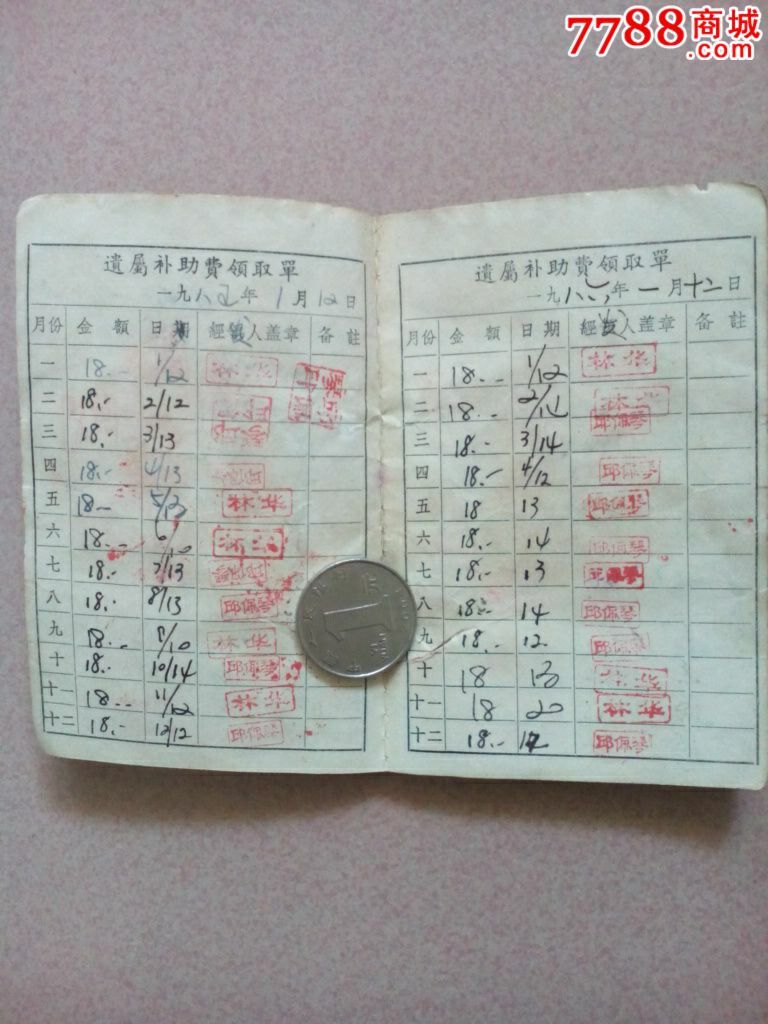 7788商城
.com
遺屬补助費領取單
一九八五年1月12日
月份 金額 日期 經發人盖章 备註
一 18.- 1/12 林华
二 18.- 2/12
三 18.- 3/13
四 18.- 4/13
五 18- 5/13 林华
六 18.- 6/10 林华
七 18.- 7/13
八 18.- 8/13 邱佩琴
九 18.- 9/10 林华
十 18.- 10/14 邱佩琴
十一 18.- 11/12 林华
十二 18.- 12/12 邱佩琴
遺屬补助費領取單
一九八六年一月十二日
月份 金額 日期 經發人盖章 备註
一 18.- 1/12 林华
二 18.- 林华
三 18.- 3/14 邱佩琴
四 18.- 4/12 邱佩琴
五 18 13 邱佩琴
六 18.- 14 邱佩琴
七 18.- 13 邱佩琴
八 18.- 14 邱佩琴
九 18.- 12. 邱佩琴
十 18 13 林华
十一 18 20 林华
十二 18.- 12 邱佩琴
1